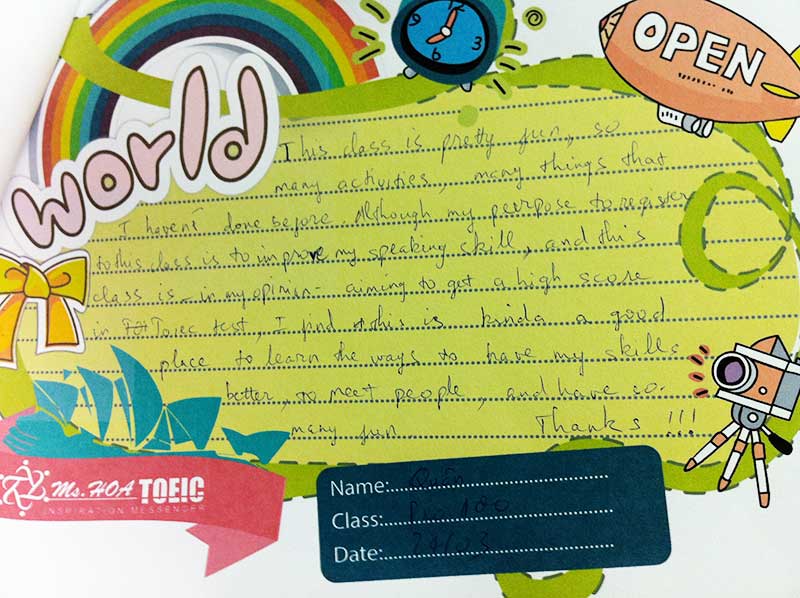 OPEN
world
This class is pretty fun, so
many activities, many things that
I haven't done before. Although my perpose to register
to this class is to improve my speaking skill, and this
class is - in my opinion - aiming to get a high score
in Toeic test, I find this is kinda a good
place to learn the ways to have my skills
better, to meet people, and have so
many fun Thanks !!!
Ms. HOA TOEIC
INSPIRATION MESSENGER
Name:
Class:
Date: